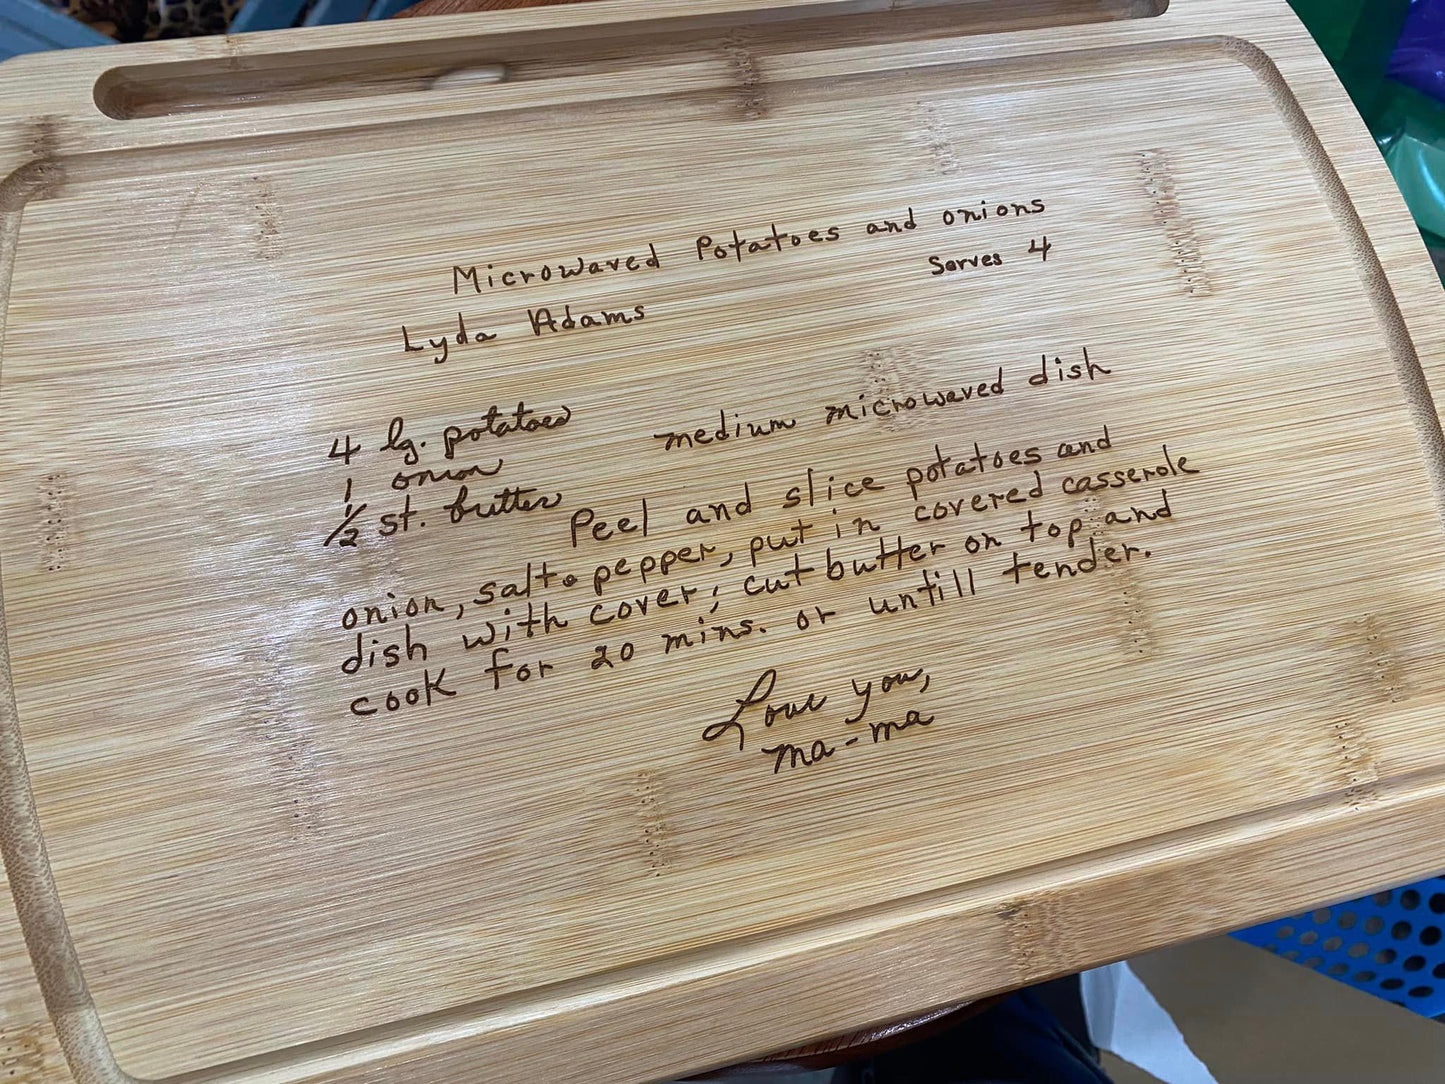 Microwaved Potatoes and onions
Serves 4
Lyda Adams
4 lg. potatoes
medium microwaved dish
1 onion
1/2 st. butter
Peel and slice potatoes and
onion, salt & pepper, put in covered casserole
dish with cover; cut butter on top and
cook for 20 mins. or untill tender.
Love you,
ma-ma